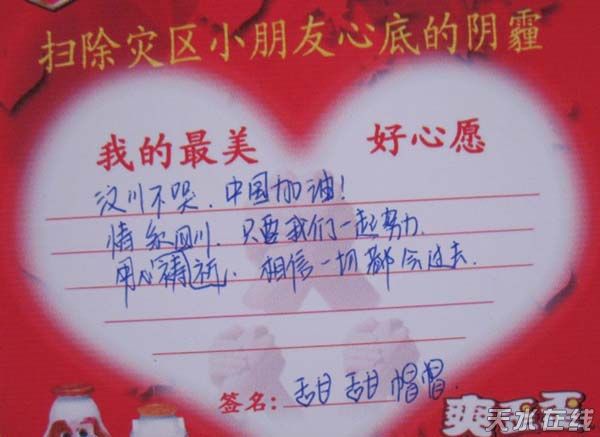 扫除灾区小朋友心底的阴霾
我的最美 好心愿
汶川不哭,中国加油!
情系四川,只要我们一起努力.
用心祷,相信一切都会过去.
签名:甜甜
爽歪歪
天水在线